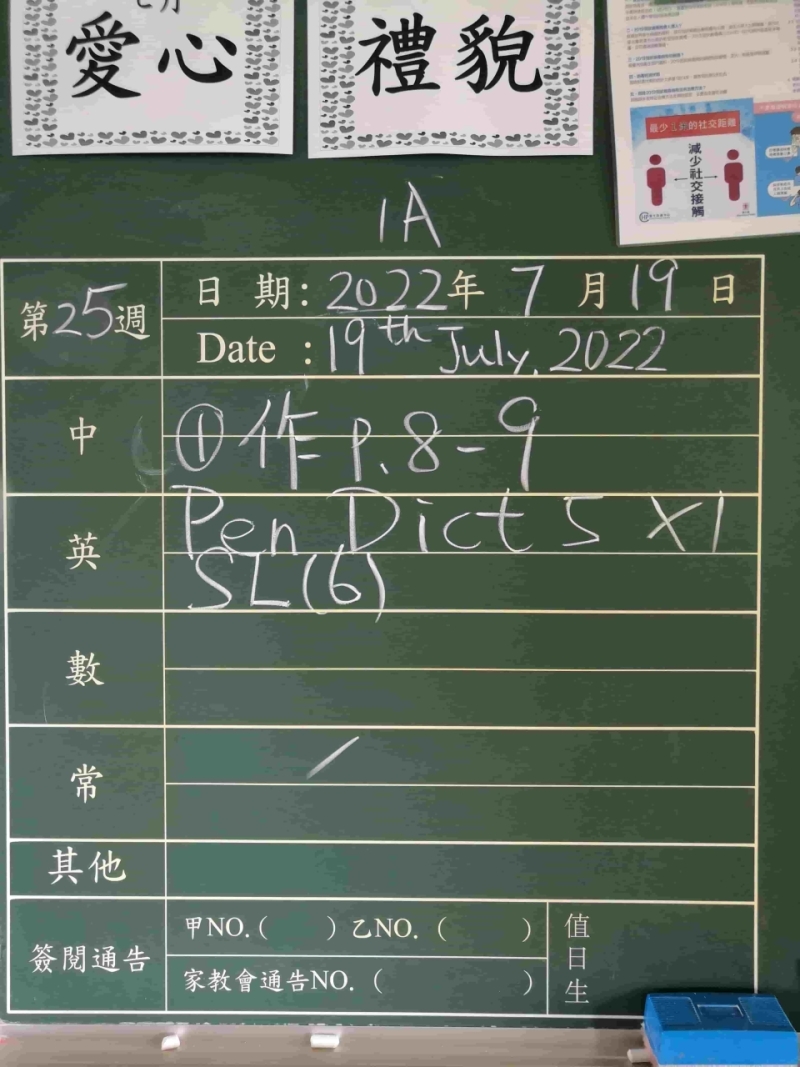 七月
愛心
禮貌
最少 的社交距離
減少社交接觸
1A
第25週
日 期: 2022年 7 月 19 日
Date : 19th July, 2022
中
① 作 p. 8-9
英
Pen Dict 5 x1
SL(6)
數
常
/
其他
簽閱通告
甲NO.( ) 乙NO. ( )
家教會通告NO. ( )
值日生